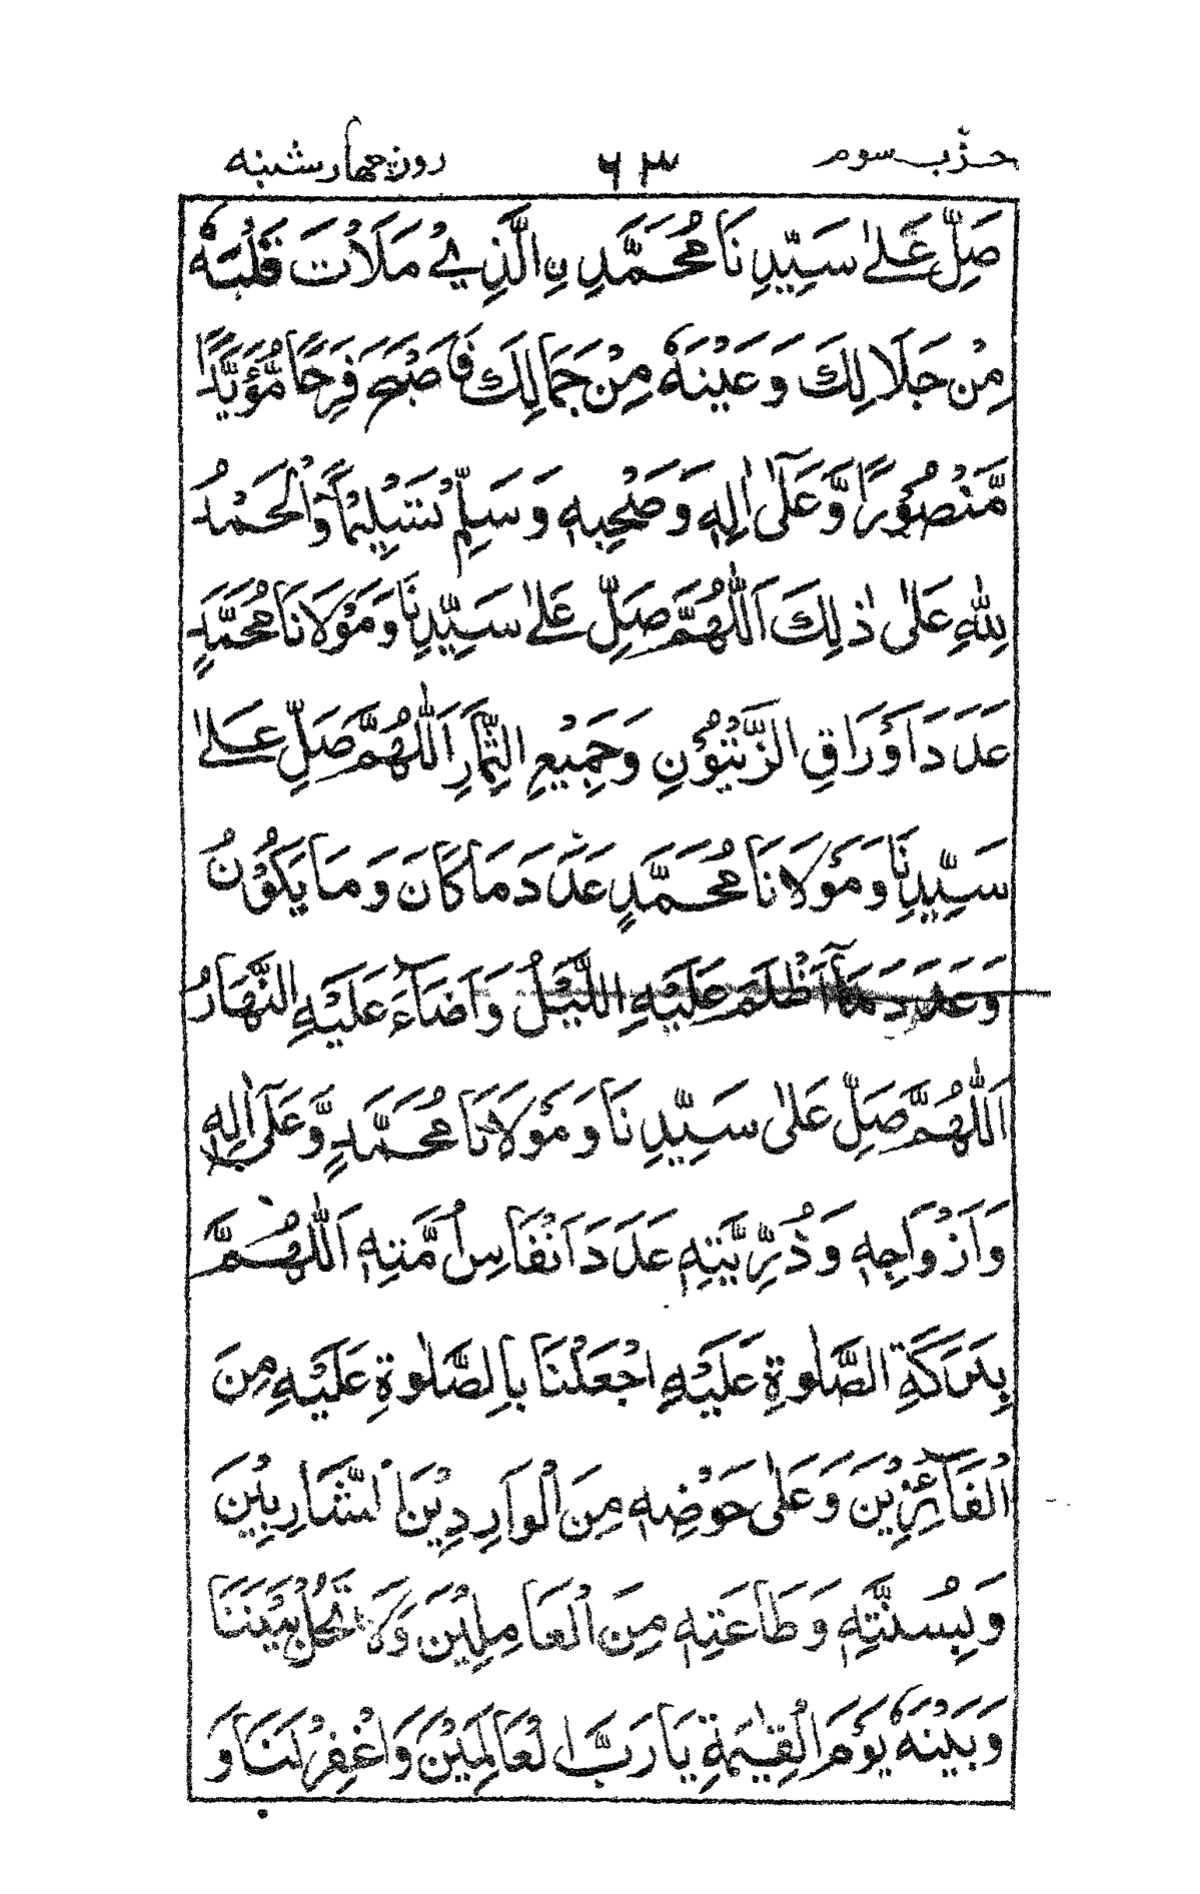 حزب سوم ۶۳ روز چهار شنبه
صَلِّ عَلٰى سَيِّدِنَا مُحَمَّدِ نِ الَّذِيْ مَلَأْتَ قَلْبَهٗ
مِنْ جَلَالِكَ وَعَيْنَهٗ مِنْ جَمَالِكَ فَاصْبَحَ فَرِحًا مُّؤَيَّدًا
مَّنْصُوْرًا وَّعَلٰٓى اٰلِهٖ وَصَحْبِهٖ وَسَلِّمْ تَسْلِيْمًا وَّالْحَمْدُ
لِلّٰهِ عَلٰى ذٰلِكَ اَللّٰهُمَّ صَلِّ عَلٰى سَيِّدِنَا وَمَوْلَانَا مُحَمَّدٍ
عَدَدَ اَوْرَاقِ الزَّيْتُوْنِ وَجَمِيْعِ الثِّمَارِ اَللّٰهُمَّ صَلِّ عَلٰى
سَيِّدِنَا وَمَوْلَانَا مُحَمَّدٍ عَدَدَ مَا كَانَ وَمَا يَكُوْنُ
وَعَدَدَ مَآ اَظْلَمَ عَلَيْهِ اللَّيْلُ وَاَضَآءَ عَلَيْهِ النَّهَارُ
اَللّٰهُمَّ صَلِّ عَلٰى سَيِّدِنَا وَمَوْلَانَا مُحَمَّدٍ وَّعَلٰٓى اٰلِهٖ
وَاَزْوَاجِهٖ وَذُرِّيَّتِهٖ عَدَدَ اَنْفَاسِ اُمَّتِهٖ اَللّٰهُمَّ
بِبَرَكَةِ الصَّلٰوةِ عَلَيْهِ اجْعَلْنَا بِالصَّلٰوةِ عَلَيْهِ مِنَ
الْفَآئِزِيْنَ وَعَلٰى حَوْضِهٖ مِنَ الْوَارِدِيْنَ الشَّارِبِيْنَ
وَبِسُنَّتِهٖ وَطَاعَتِهٖ مِنَ الْعَامِلِيْنَ وَلَا تَحُلْ بَيْنَنَا
وَبَيْنَهٗ يَوْمَ الْقِيٰمَةِ يَا رَبَّ الْعَالَمِيْنَ وَاغْفِرْ لَنَا وَ